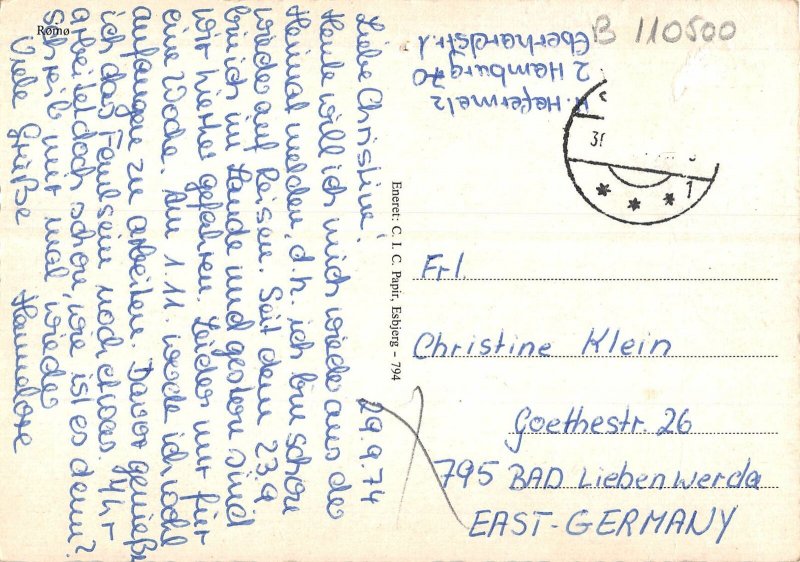 Rømø
Liebe Christine! 29.9.74
Heute will ich mich wieder aus der
Heimat melden, d.h. ich bin schon
wieder auf Reisen. Seit dem 23.9
bin ich im Lande und gestern sind
wir hierher gefahren. Leider nur für
eine Woche. Am 1.11. werde ich wohl
anfangen zu arbeiten. Davor genieße
ich das Faulsein noch etwas. Ihr
arbeitet doch schon, wie ist es denn?
Schreib mir mal wieder
Viele Grüße Hannelore
Eneret: C. I. C. Papir, Esbjerg - 794
H. Hefermelz
2 Hamburg 70
Eberhardstr. 1
B 110500
1
Frl.
Christine Klein
Goethestr. 26
795 BAD Liebenwerda
EAST-GERMANY